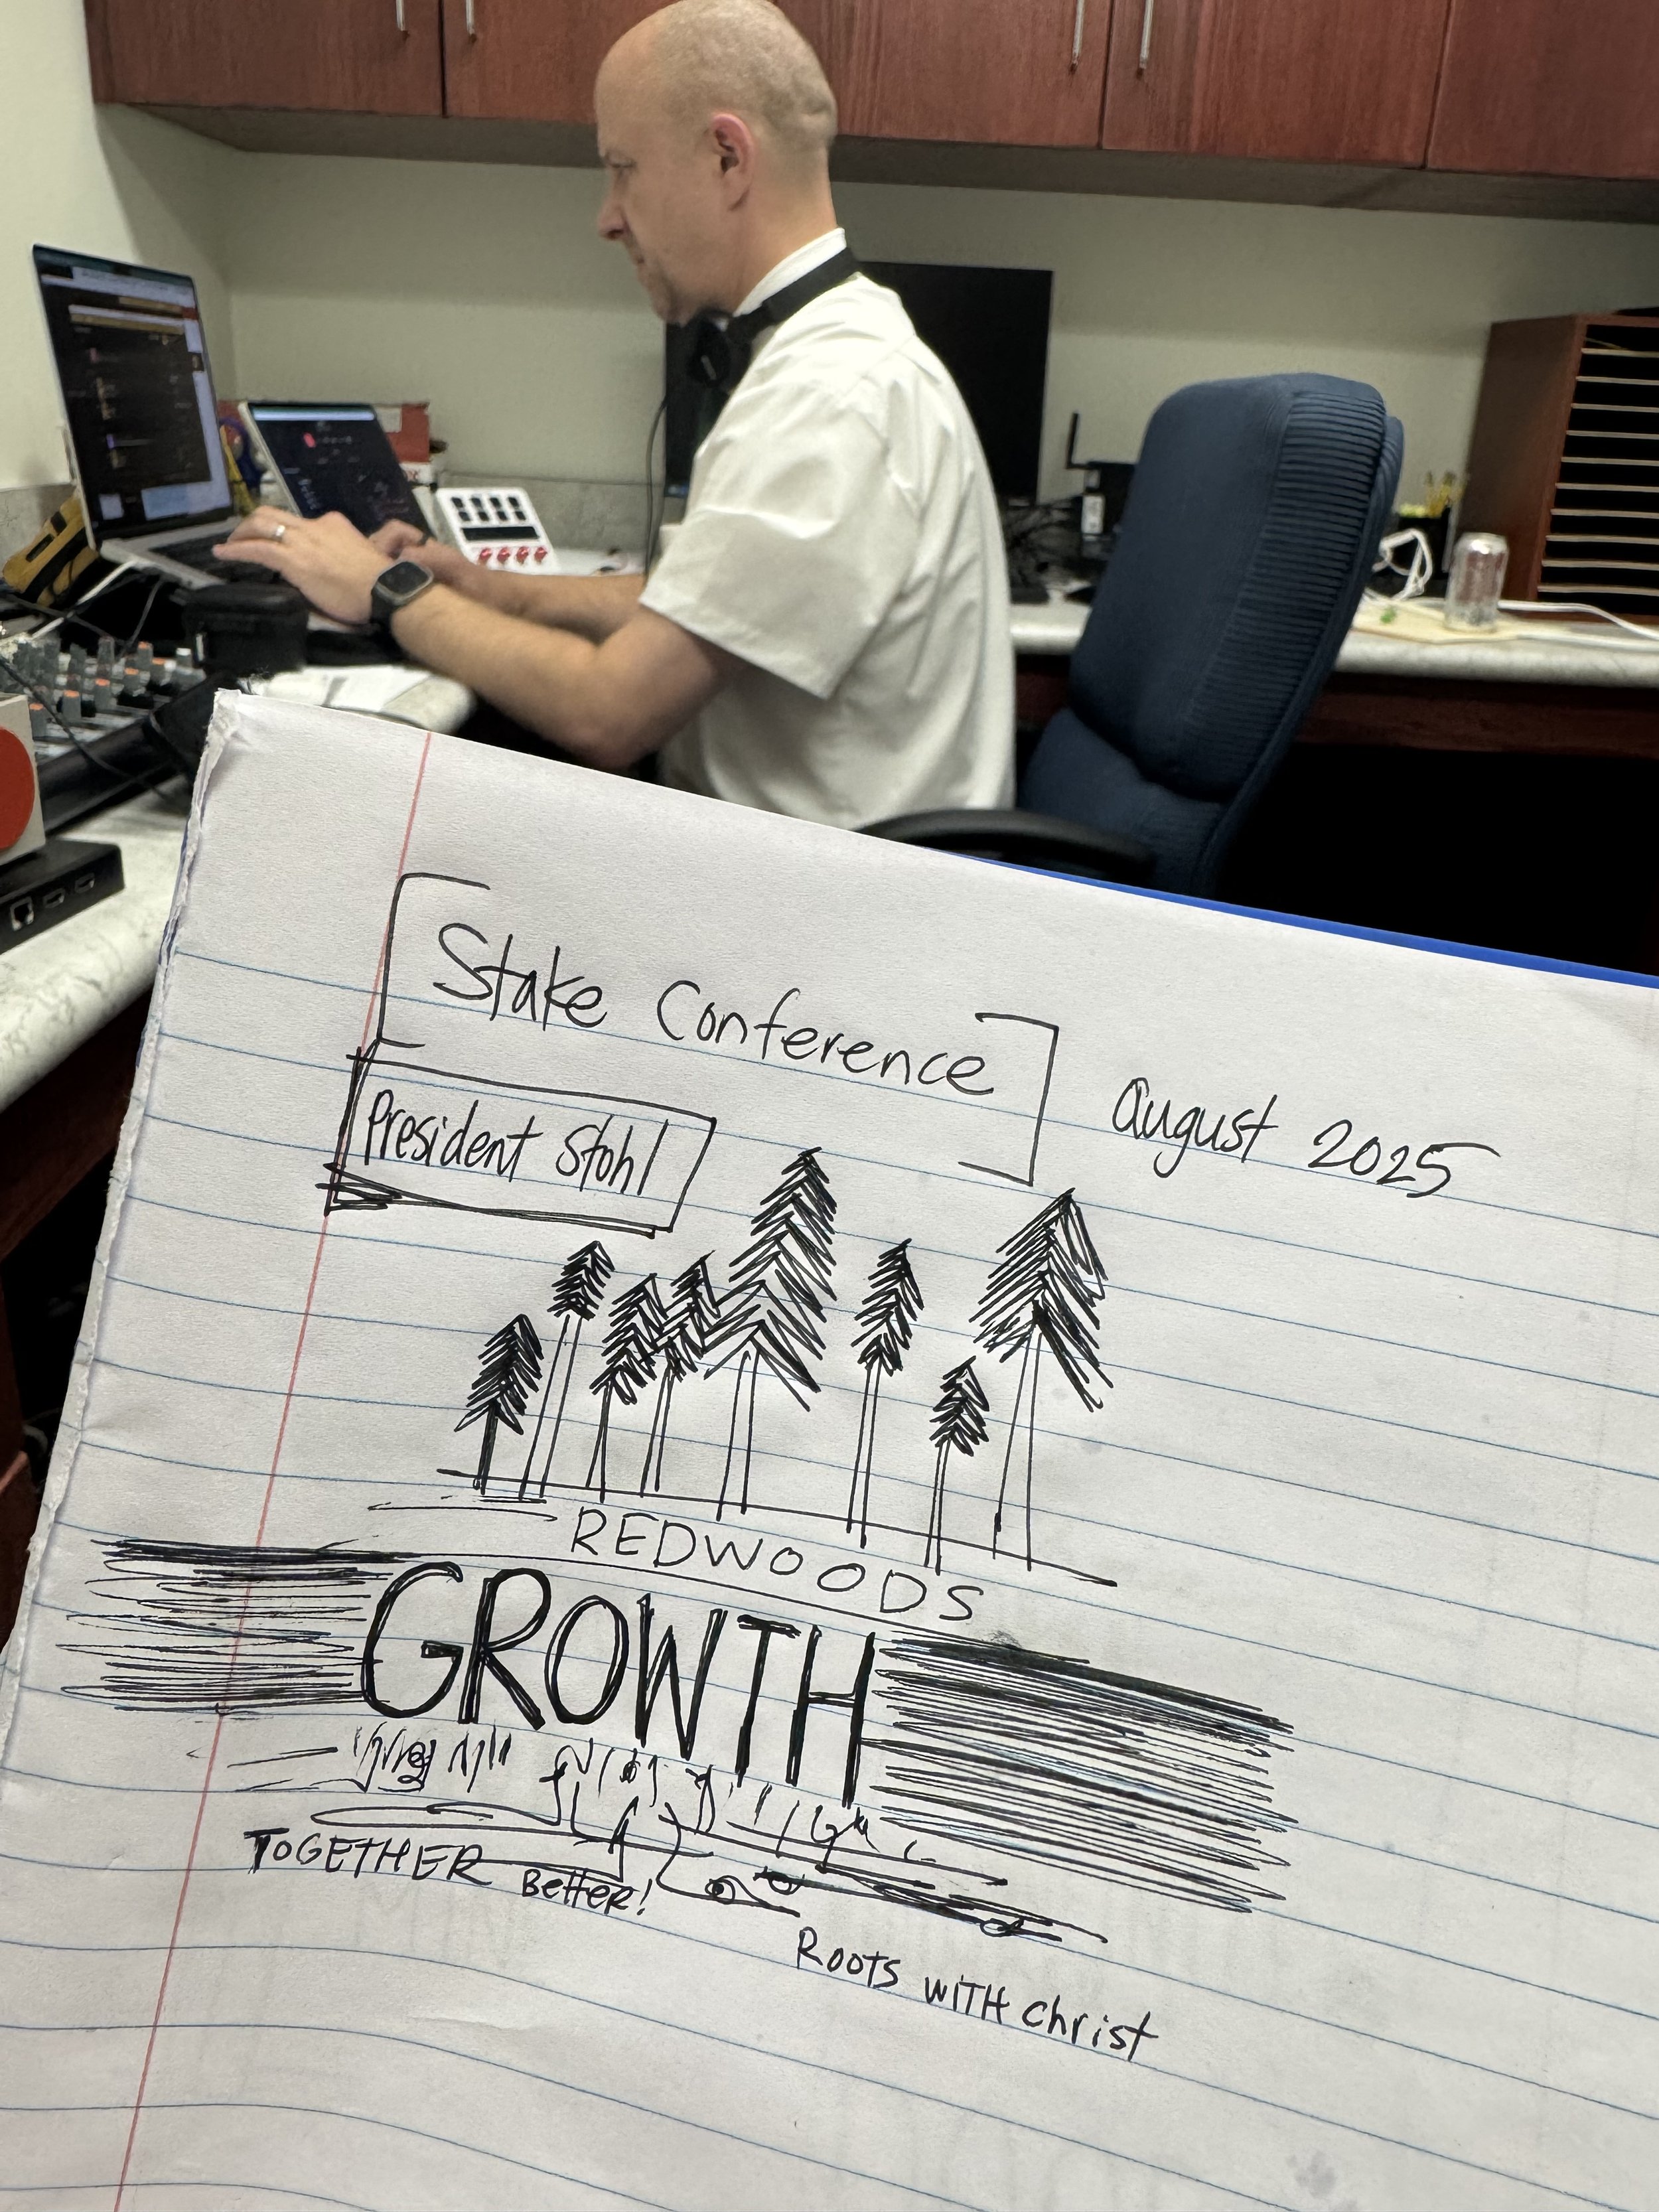 Stake Conference
August 2025
President Stohl
REDWOODS
GROWTH
TOGETHER Better!
Roots WITH Christ